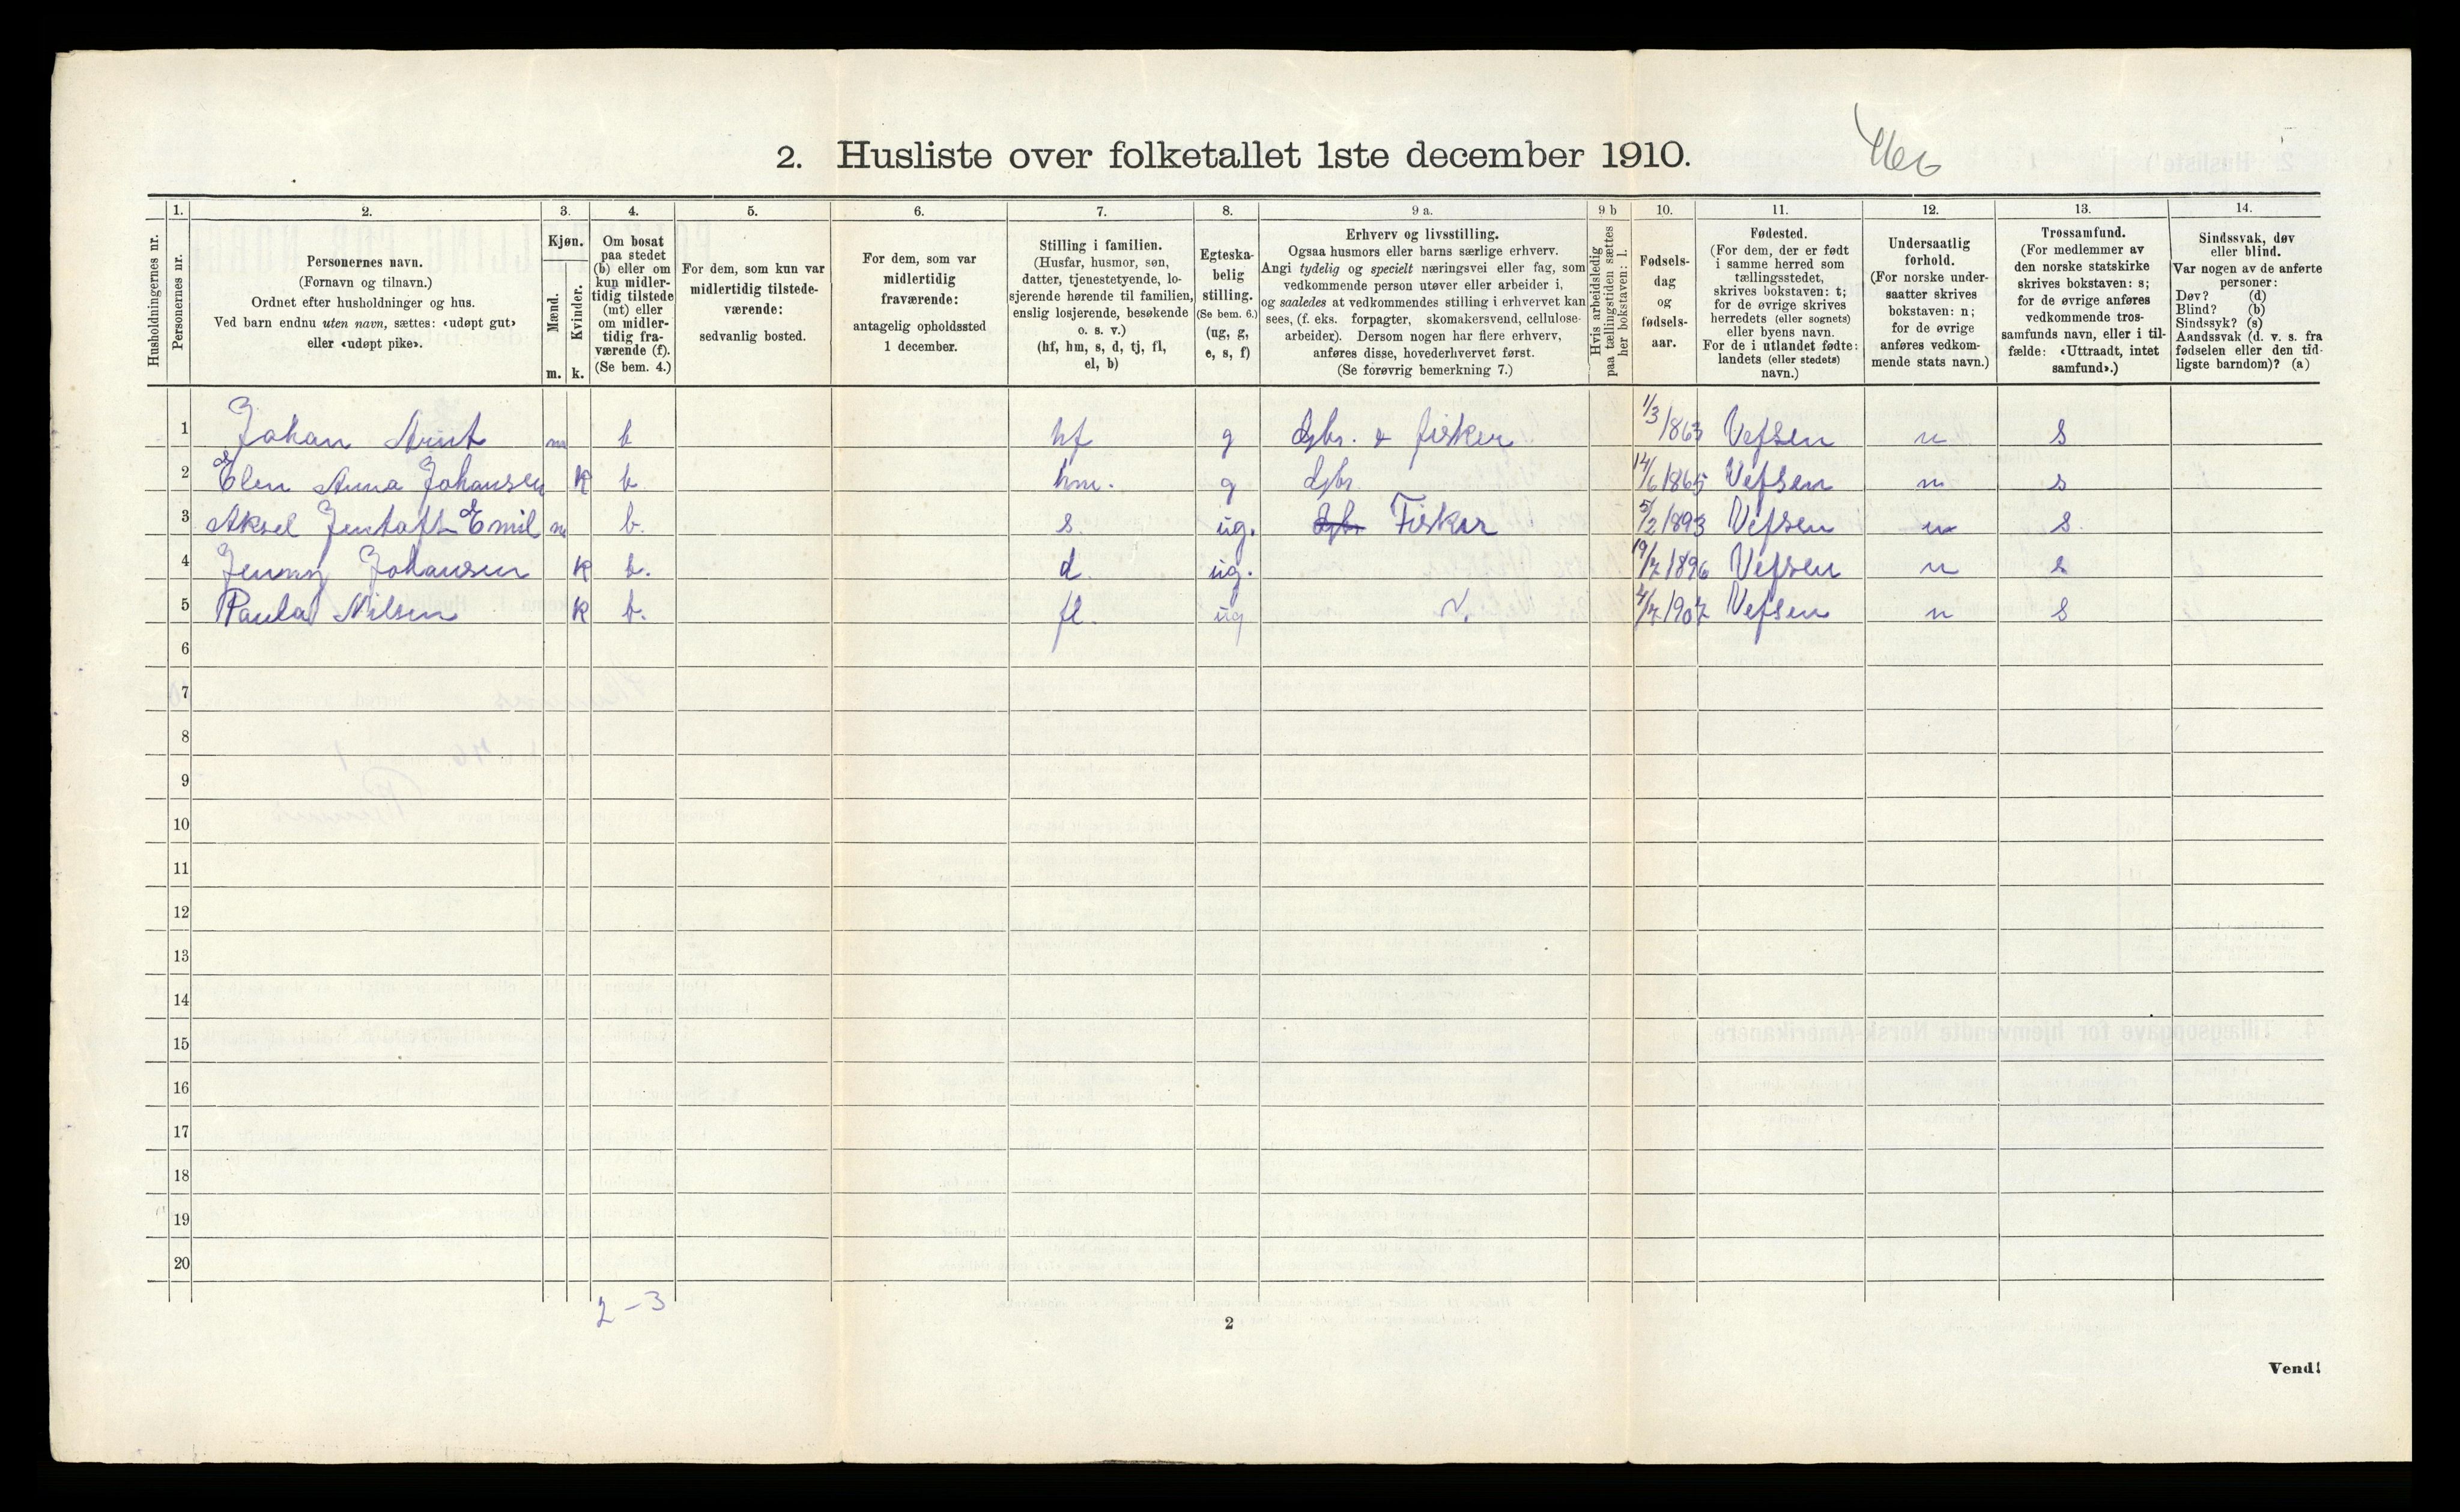 2. Husliste over folketallet 1ste december 1910.
Husholdningernes nr.
1.
Personernes nr.
2.
Personernes navn.
(Fornavn og tilnavn.)
Ordnet efter husholdninger og hus.
Ved barn endnu uten navn, sættes: «udøpt gut»
eller «udøpt pike».
3.
Kjøn.
Mænd.
Kvinder.
m. k.
4.
Om bosat
paa stedet
(b) eller om
kun midler-
tidig tilstede
(mt) eller
om midler-
tidig fra-
værende (f).
(Se bem. 4.)
5.
For dem, som kun var
midlertidig tilstede-
værende:
sedvanlig bosted.
6.
For dem, som var
midlertidig
fraværende:
antagelig opholdssted
1 december.
7.
Stilling i familien.
(Husfar, husmor, søn,
datter, tjenestetyende, lo-
sjerende hørende til familien,
enslig losjerende, besøkende
o. s. v.)
(hf, hm, s, d, tj, fl,
el, b)
8.
Egteska-
belig
stilling.
(Se bem. 6.)
(ug, g,
e, s, f)
9 a.
Erhverv og livsstilling.
Ogsaa husmors eller barns særlige erhverv.
Angi tydelig og specielt næringsvei eller fag, som
vedkommende person utøver eller arbeider i,
og saaledes at vedkommendes stilling i erhvervet kan
sees, (f. eks. forpagter, skomakersvend, cellulose-
arbeider). Dersom nogen har flere erhverv,
anføres disse, hovederhvervet først.
(Se forøvrig bemerkning 7.)
9 b
Hvis arbeidsledig
paa tællingstiden sættes
her bokstaven: l.
10.
Fødsels-
dag
og
fødsels-
aar.
11.
Fødested.
(For dem, der er født
i samme herred som
tællingsstedet,
skrives bokstaven: t;
for de øvrige skrives
herredets (eller sognets)
eller byens navn.
For de i utlandet fødte:
landets (eller stedets)
navn.)
12.
Undersaatlig
forhold.
(For norske under-
saatter skrives
bokstaven: n;
for de øvrige
anføres vedkom-
mende stats navn.)
13.
Trossamfund.
(For medlemmer av
den norske statskirke
skrives bokstaven: s;
for de øvrige anføres
vedkommende tros-
samfunds navn, eller i til-
fælde: «Uttraadt, intet
samfund».)
14.
Sindssvak, døv
eller blind.
Var nogen av de anførte
personer:
Døv? (d)
Blind? (b)
Sindssyk? (s)
Aandssvak (d. v. s. fra
fødselen eller den tid-
ligste barndom)? (a)
1 Johan Arnt m b hf g Gbr. & fisker 1/3 1863 Vefsen n s
2 Elen Anna Johansen k b hm. g Gbr. 14/6 1865 Vefsen n s
3 Aksel Jentoft Emil m b. s. ug. Gbr. Fisker 5/2 1893 Vefsen n s.
4 Jenny Johansen k b. d. ug. 19/7 1896 Vefsen n s
5 Paula Nilsen k b. fl. ug 4/7 1907 Vefsen n s
6
7
8
9
10
11
12
13
14
15
16
17
18
19
20
2 - 3
2
Vend!